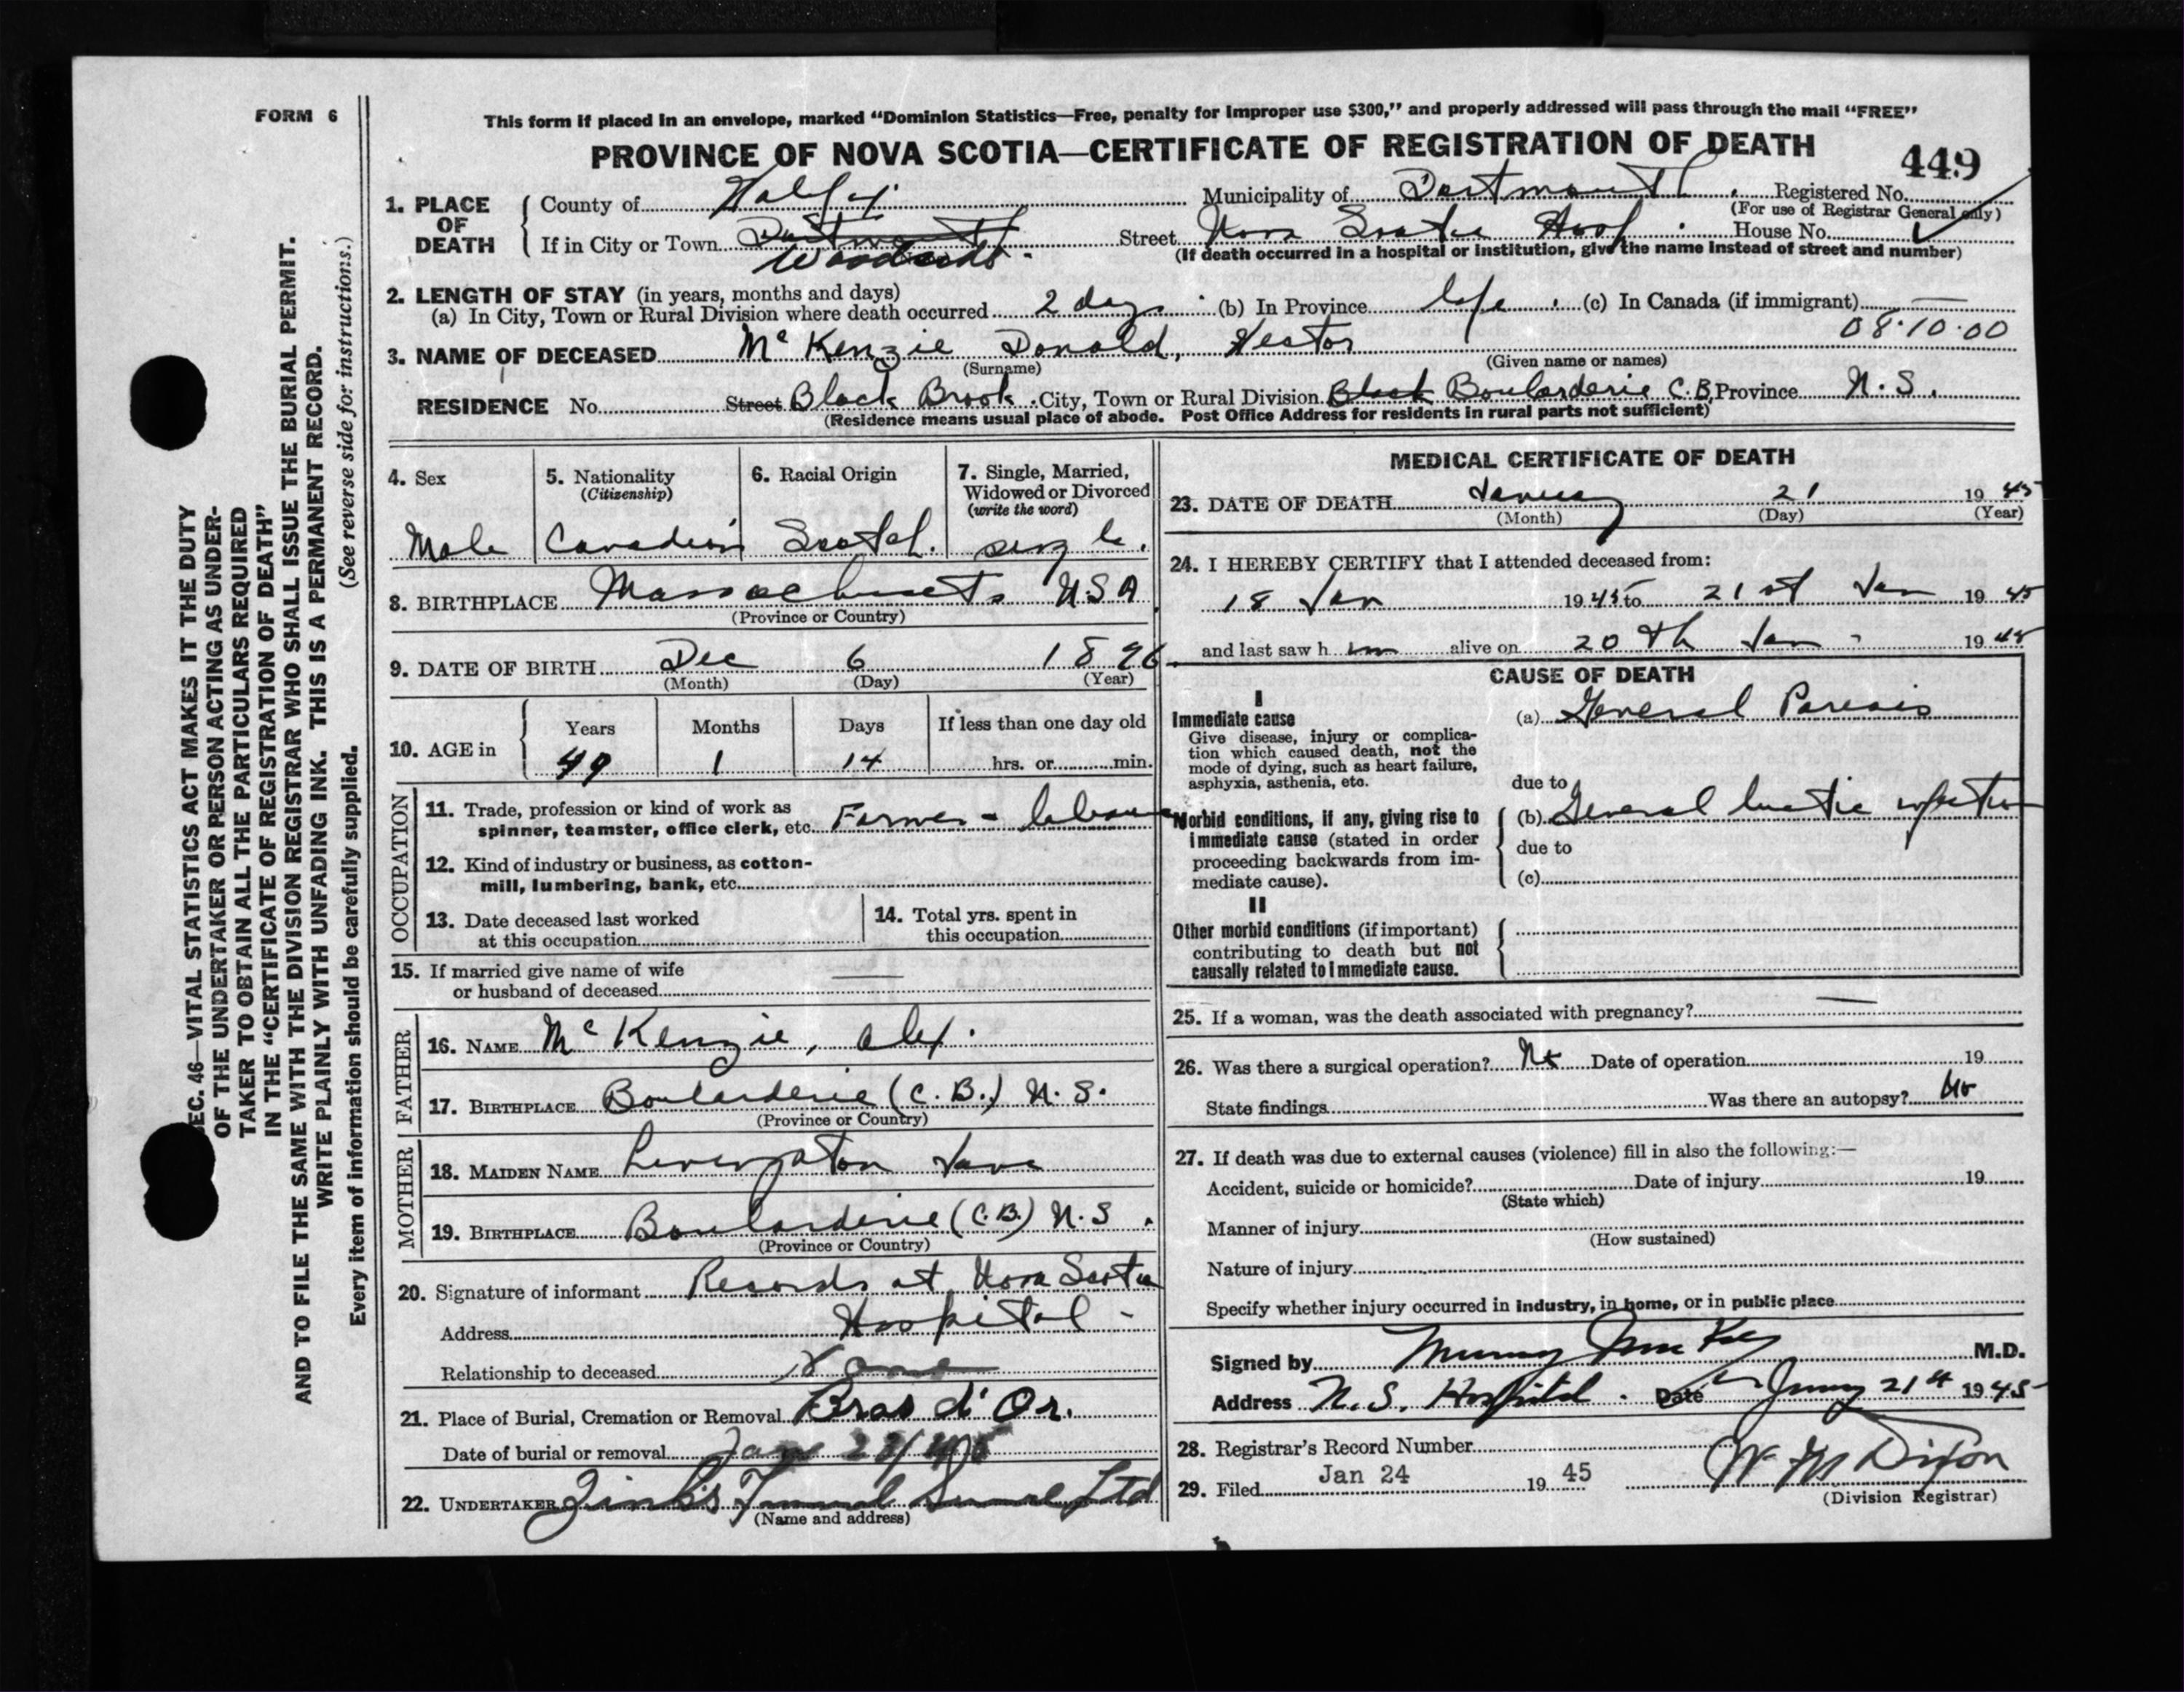 FORM 6
This form if placed in an envelope, marked "Dominion Statistics—Free, penalty for improper use $300," and properly addressed will pass through the mail "FREE"
PROVINCE OF NOVA SCOTIA—CERTIFICATE OF REGISTRATION OF DEATH
449
1. PLACE OF DEATH
County of Halifax Municipality of Dartmouth Registered No.
(For use of Registrar General only)
If in City or Town Dartmouth Street Nova Scotia Hosp. House No.
Woodside
(If death occurred in a hospital or institution, give the name instead of street and number)
2. LENGTH OF STAY (in years, months and days)
(a) In City, Town or Rural Division where death occurred 2 days (b) In Province life (c) In Canada (if immigrant) —
08.10.00
3. NAME OF DECEASED McKenzie Donald, Hector
(Surname) (Given name or names)
RESIDENCE No. Street Black Brook City, Town or Rural Division Black Boularderie C.B. Province N.S.
(Residence means usual place of abode. Post Office Address for residents in rural parts not sufficient)
4. Sex
Male
5. Nationality
(Citizenship)
Canadian
6. Racial Origin
Scotch.
7. Single, Married,
Widowed or Divorced
(write the word)
single.
8. BIRTHPLACE Massachusets U.S.A.
(Province or Country)
9. DATE OF BIRTH Dec 6 1896
(Month) (Day) (Year)
10. AGE in
Years Months Days If less than one day old
49 1 14 hrs. or min.
OCCUPATION
11. Trade, profession or kind of work as
spinner, teamster, office clerk, etc. Farmer - labourer
12. Kind of industry or business, as cotton-
mill, lumbering, bank, etc.
13. Date deceased last worked
at this occupation
14. Total yrs. spent in
this occupation
15. If married give name of wife
or husband of deceased —
FATHER
16. NAME McKenzie, Alex.
17. BIRTHPLACE Boularderie (C.B.) N.S.
(Province or Country)
MOTHER
18. MAIDEN NAME Livingston Jane
19. BIRTHPLACE Boularderie (C.B.) N.S.
(Province or Country)
20. Signature of informant Records at Nova Scotia
Address Hospital -
Relationship to deceased
21. Place of Burial, Cremation or Removal Bras d'Or.
Date of burial or removal Jan
22. UNDERTAKER Zink's Funeral Service Ltd
(Name and address)
MEDICAL CERTIFICATE OF DEATH
23. DATE OF DEATH January 21 1945
(Month) (Day) (Year)
24. I HEREBY CERTIFY that I attended deceased from:
18 Jan 1945 to 21st Jan 1945
and last saw h im alive on 20th Jan - 1945
CAUSE OF DEATH
I
Immediate cause
Give disease, injury or complica-
tion which caused death, not the
mode of dying, such as heart failure,
asphyxia, asthenia, etc.
(a) General Paresis
due to
Morbid conditions, if any, giving rise to
immediate cause (stated in order
proceeding backwards from im-
mediate cause).
(b) General luetic infection
due to
(c)
II
Other morbid conditions (if important)
contributing to death but not
causally related to immediate cause.
25. If a woman, was the death associated with pregnancy? —
26. Was there a surgical operation? No Date of operation 19
State findings Was there an autopsy? No
27. If death was due to external causes (violence) fill in also the following:—
Accident, suicide or homicide? Date of injury 19
(State which)
Manner of injury
(How sustained)
Nature of injury
Specify whether injury occurred in industry, in home, or in public place
Signed by Murray MacKay M.D.
Address N.S. Hospital. Date 21st 1945
28. Registrar's Record Number
29. Filed Jan 24 1945 W M Dixon
(Division Registrar)
SEC. 46—VITAL STATISTICS ACT MAKES IT THE DUTY
OF THE UNDERTAKER OR PERSON ACTING AS UNDER-
TAKER TO OBTAIN ALL THE PARTICULARS REQUIRED
IN THE "CERTIFICATE OF REGISTRATION OF DEATH"
AND TO FILE THE SAME WITH THE DIVISION REGISTRAR WHO SHALL ISSUE THE BURIAL PERMIT.
WRITE PLAINLY WITH UNFADING INK. THIS IS A PERMANENT RECORD.
Every item of information should be carefully supplied. (See reverse side for instructions.)